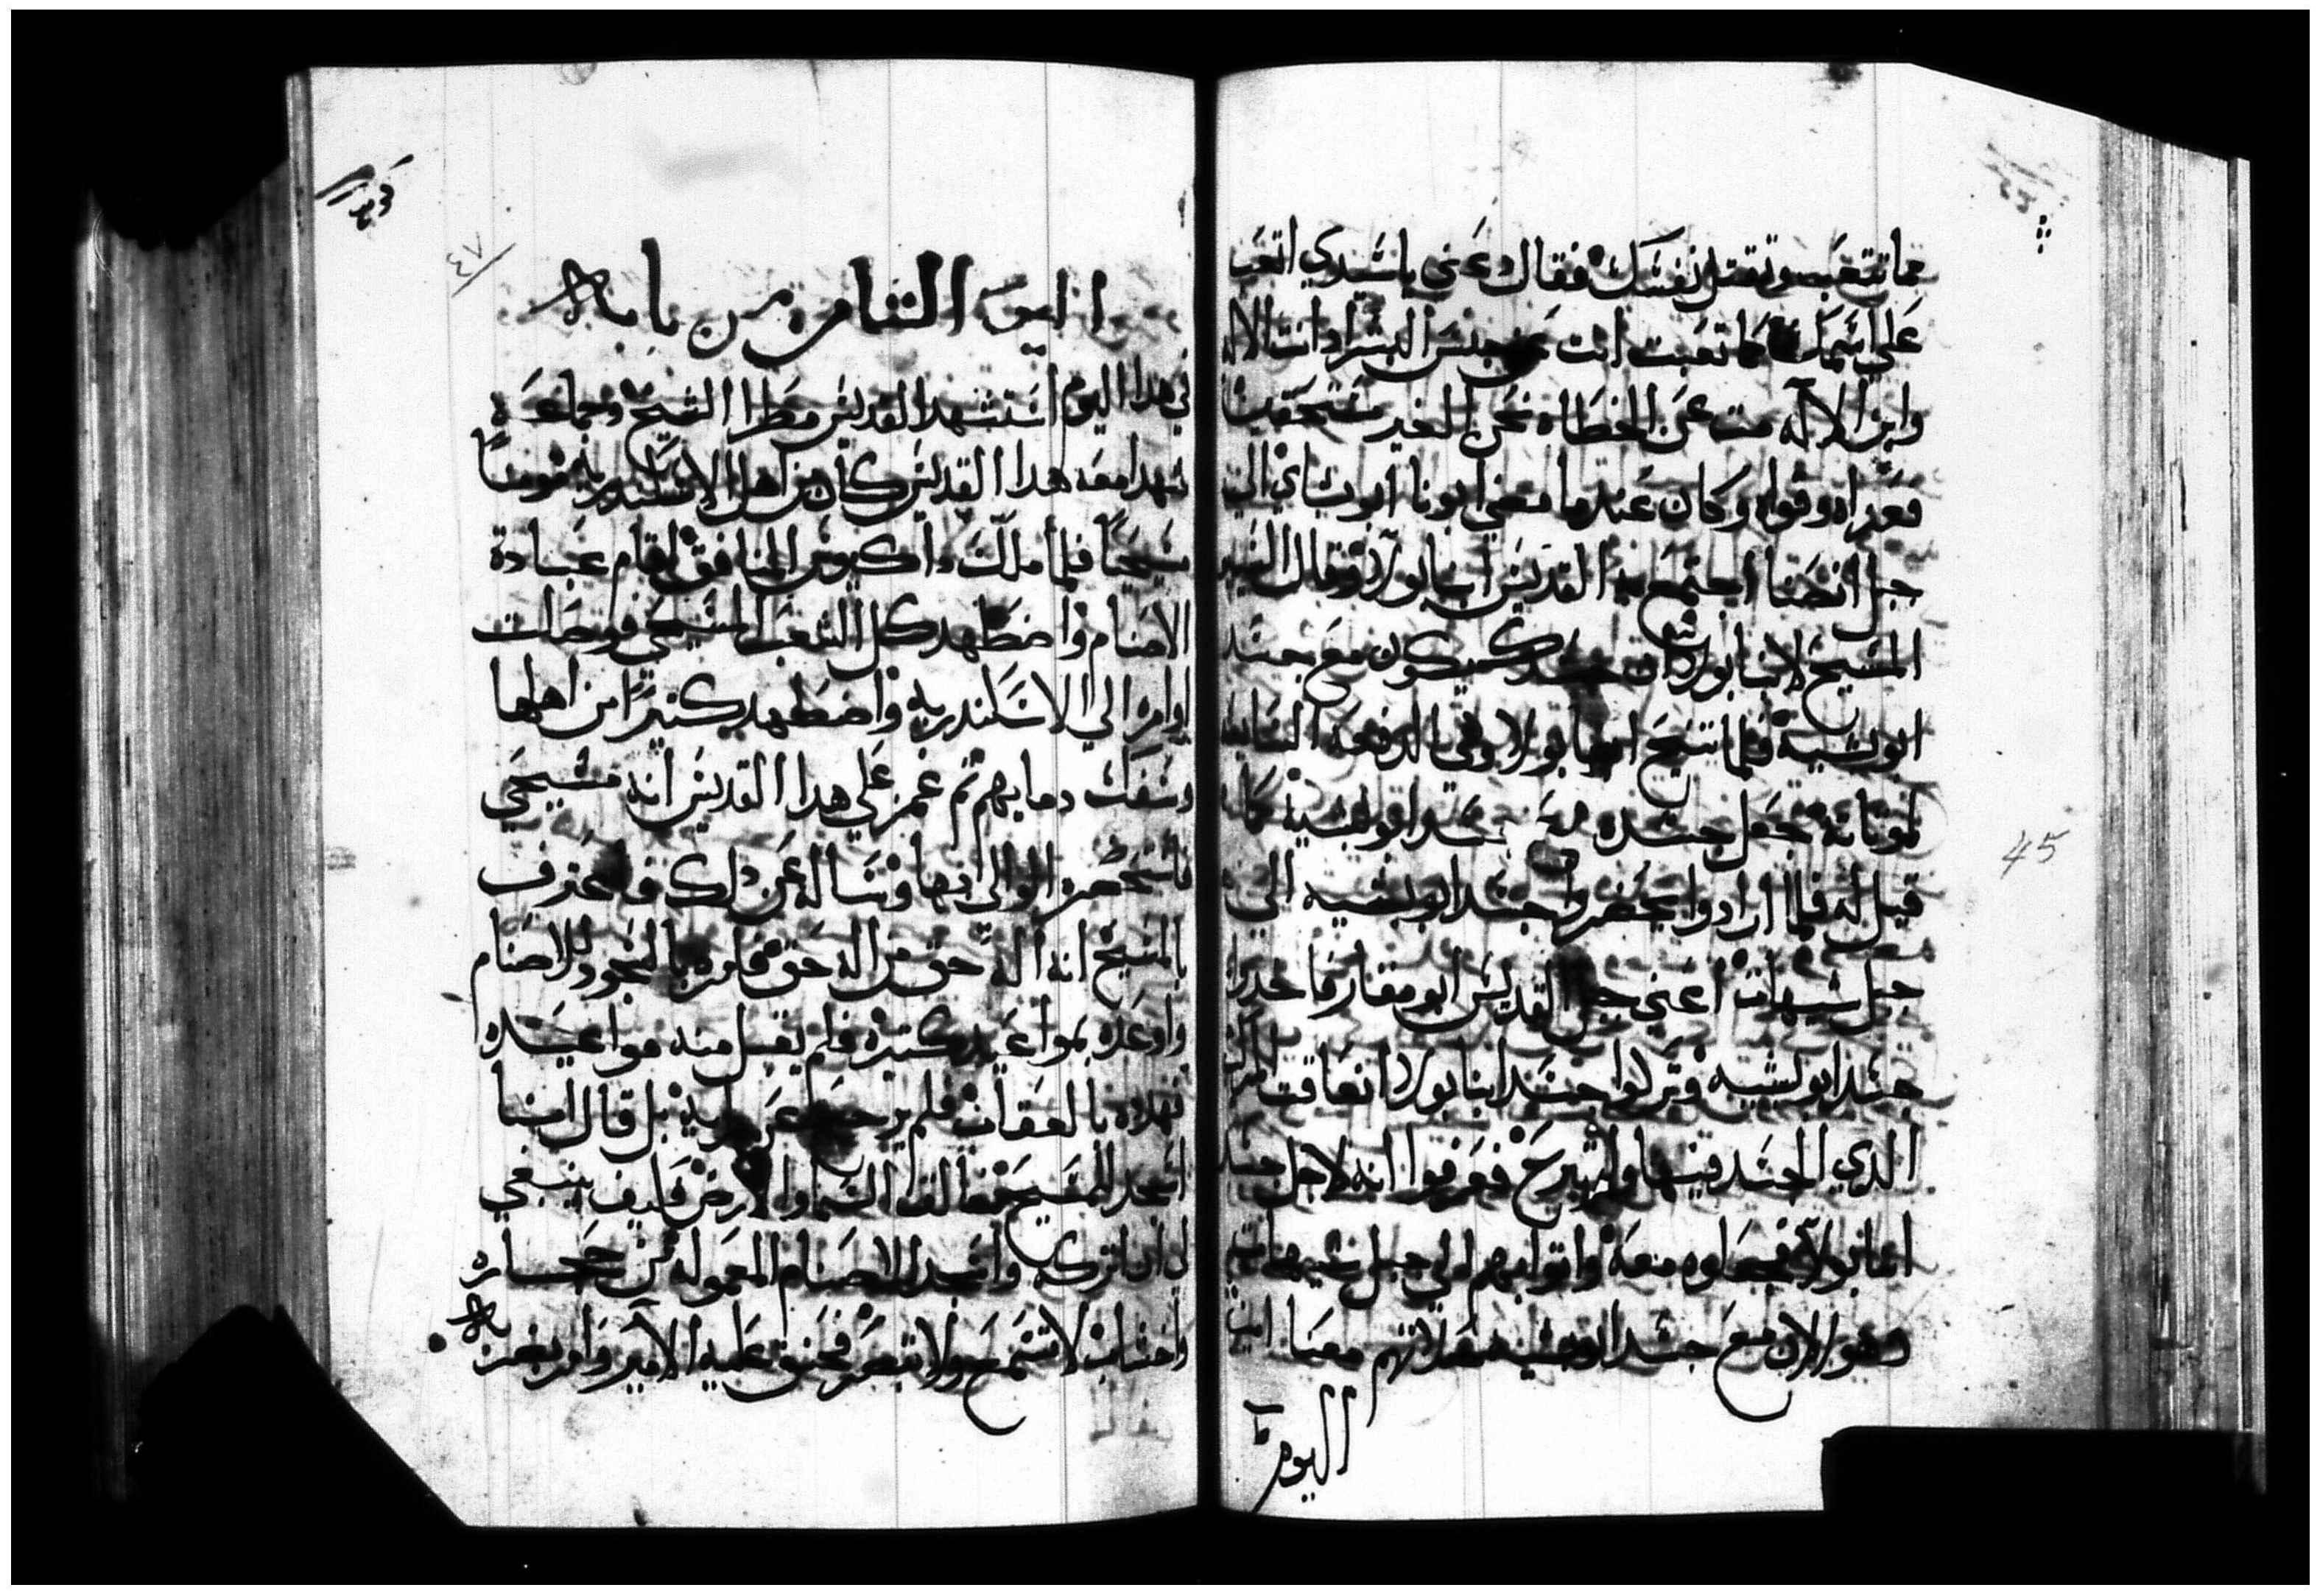 مما تتعب وتقتل نفسك فقال دعني يا سيدي اتعب
علي اسمك كما تعبت انت عن جنس البشر اذ انت الاله
وابن الاله مت عن الخطاه نحن الغير مستحقين
فعزاه وقواه وكان عندما مضي ابونا ابو بشاي الي
جبل انصنا اجتمع به القديس انبا بولا وقال السيد
المسيح لانبا بولا ان جسدك سيكون مع جسد
ابو بشيه فلما تنيح انبا بولا وفي الدفعه
جعل جسده مع جسد ابو بشيه كما
قيل له فلما ارادوا يحضروا جسد ابو بشيه الي
جبل شيهات اعني جبل القديس ابو مقار فاخدوا
جسد ابو بشيه وتركوا جسد انبا بولا انعاقت المركب
الدي الجسد فيها ولم تبرح فعرفوا انه لاجل جسد
انبا بولا فجعلوه معه واتوا بهم الي جبل شيهات
وهو الان مع جسد ابو بشيه صلاتهم معنا امين
اليوم
45
٤٧
اليوم الثامن من بابه
في هدا اليوم استشهد القديس مطرا الشيخ وجماعه
شهدا معه هدا القديس كان من اهل الاسكندريه مومنا
مسيحيا فلما ملك داكيوس المنافق اقام عبادة
الاصنام واضطهد كل الشعب المسيحي فوصلت
اوامره الي الاسكندريه واضطهد كثيرا من اهلها
وسفك دمايهم ثم غمز علي هدا القديس انه مسيحي
فاستحضره الوالي بها وساله عن دلك فاعترف
بالمسيح انه اله حق من اله حق فامره بالسجود للاصنام
واوعده بمواعيد كتيره فلم يقبل منه مواعيده
فهدده بالعقاب فلم يرجع عن رايه بل قال انا
اسجد للمسيح خالق السما والارض فكيف ينبغي
لي ان اتركه واسجد للاصنام المعموله من حجاره
واخشاب لا تسمع ولا تبصر فحنق عليه الامير وامر بضربه